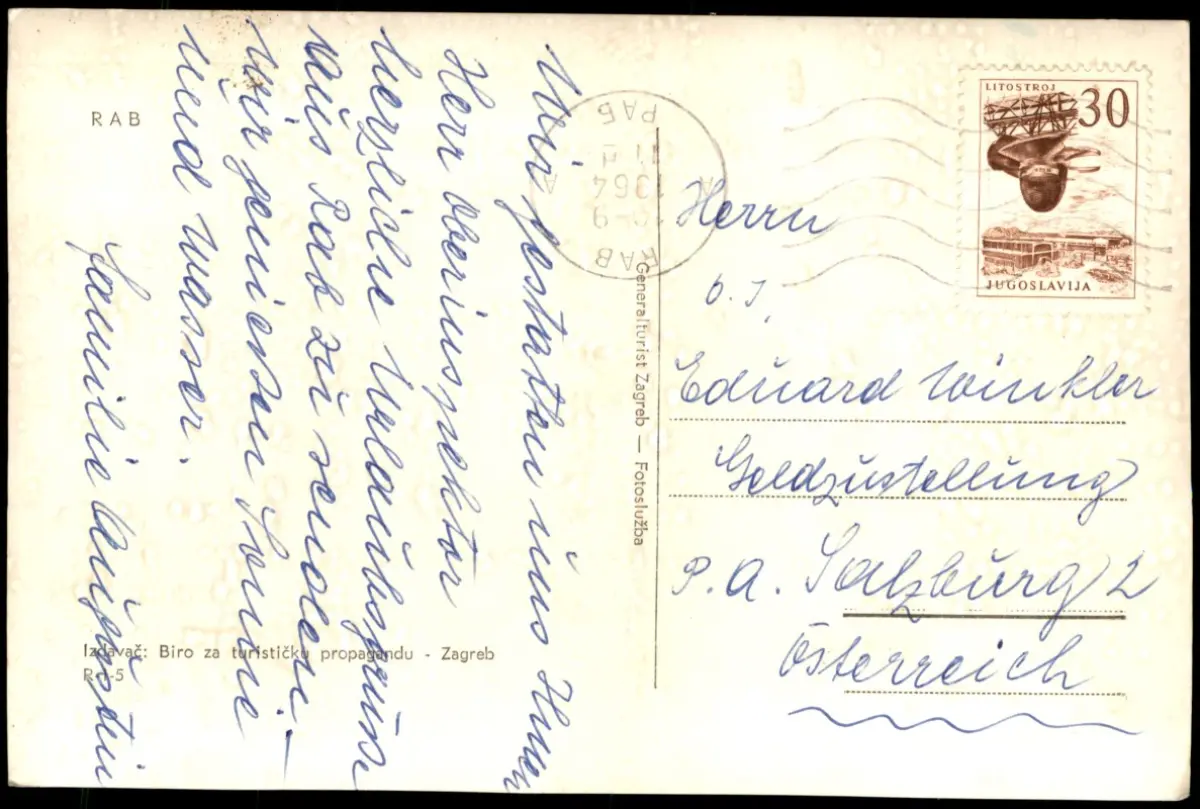 RAB
Wir gestatten uns Ihnen
Herr Oberinspektor
herzliche Urlaubsgrüße
aus Rab zu senden. –
Wir genießen Sonne
und Wasser.
Familie
Izdavač: Biro za turističku propagandu - Zagreb
R-I-5
Generalturist Zagreb — Fotoslužba
РАБ
1964
RAB
LITOSTROJ
30
JUGOSLAVIJA
Herrn
O. I.
Eduard Winkler
Geldzustellung
P. A. Salzburg 2
Österreich